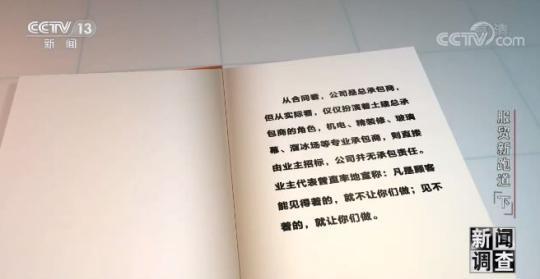 CCTV 13
新闻
CCTV.com
从合同看，公司是总承包商，
但从实际看，仅仅扮演着土建总承
包商的角色，机电、精装修、玻璃
幕、溜冰场等专业承包商，则直接
由业主招标，公司并无承包责任。
业主代表曾直率地宣称：凡是顾客
能见得着的，就不让你们做；见不
着的，就让你们做。
服贸新跑道「下」
新闻
调查